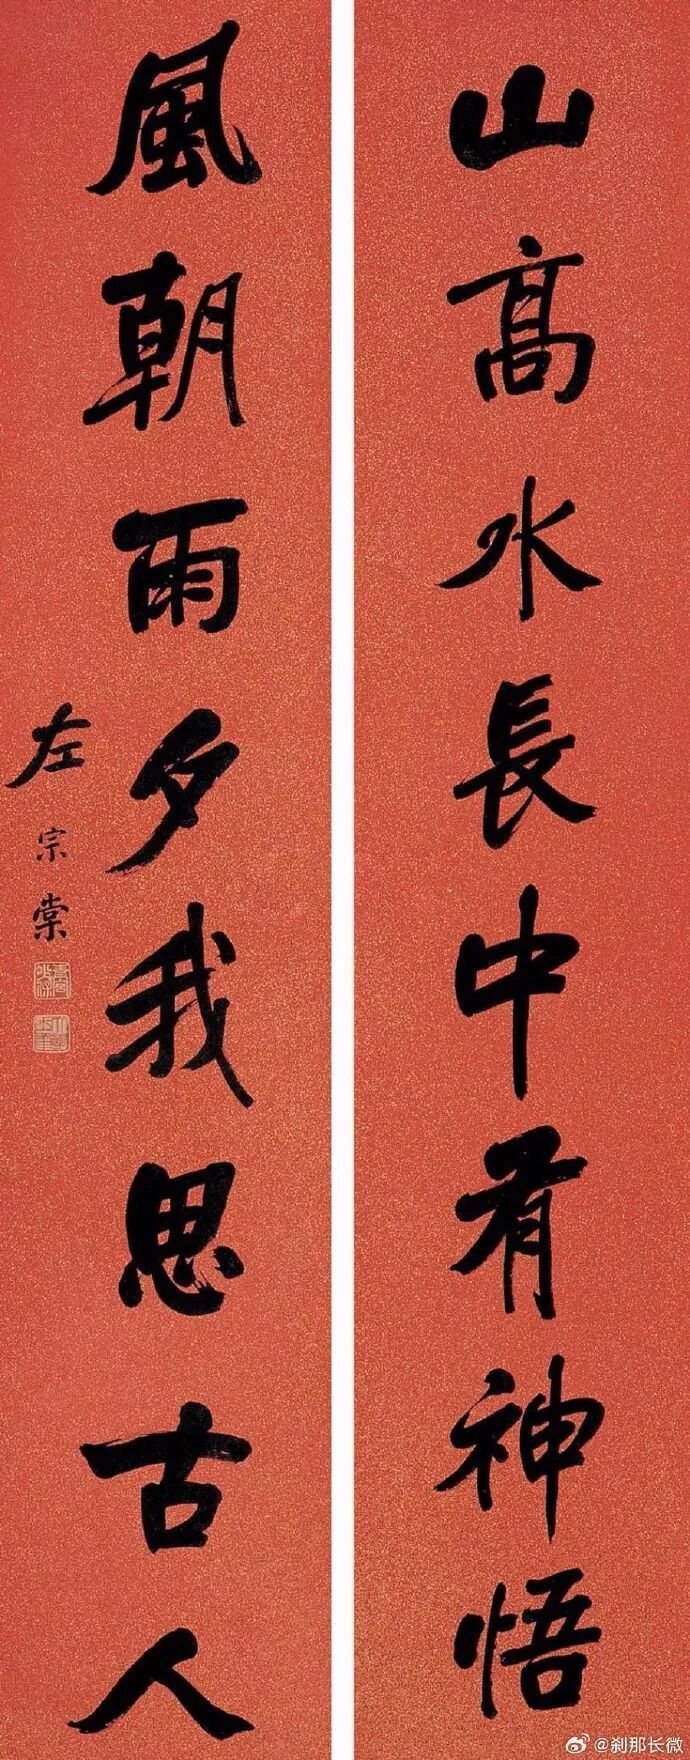 山高水長中有神悟
風朝雨夕我思古人
左宗棠
@刹那长微